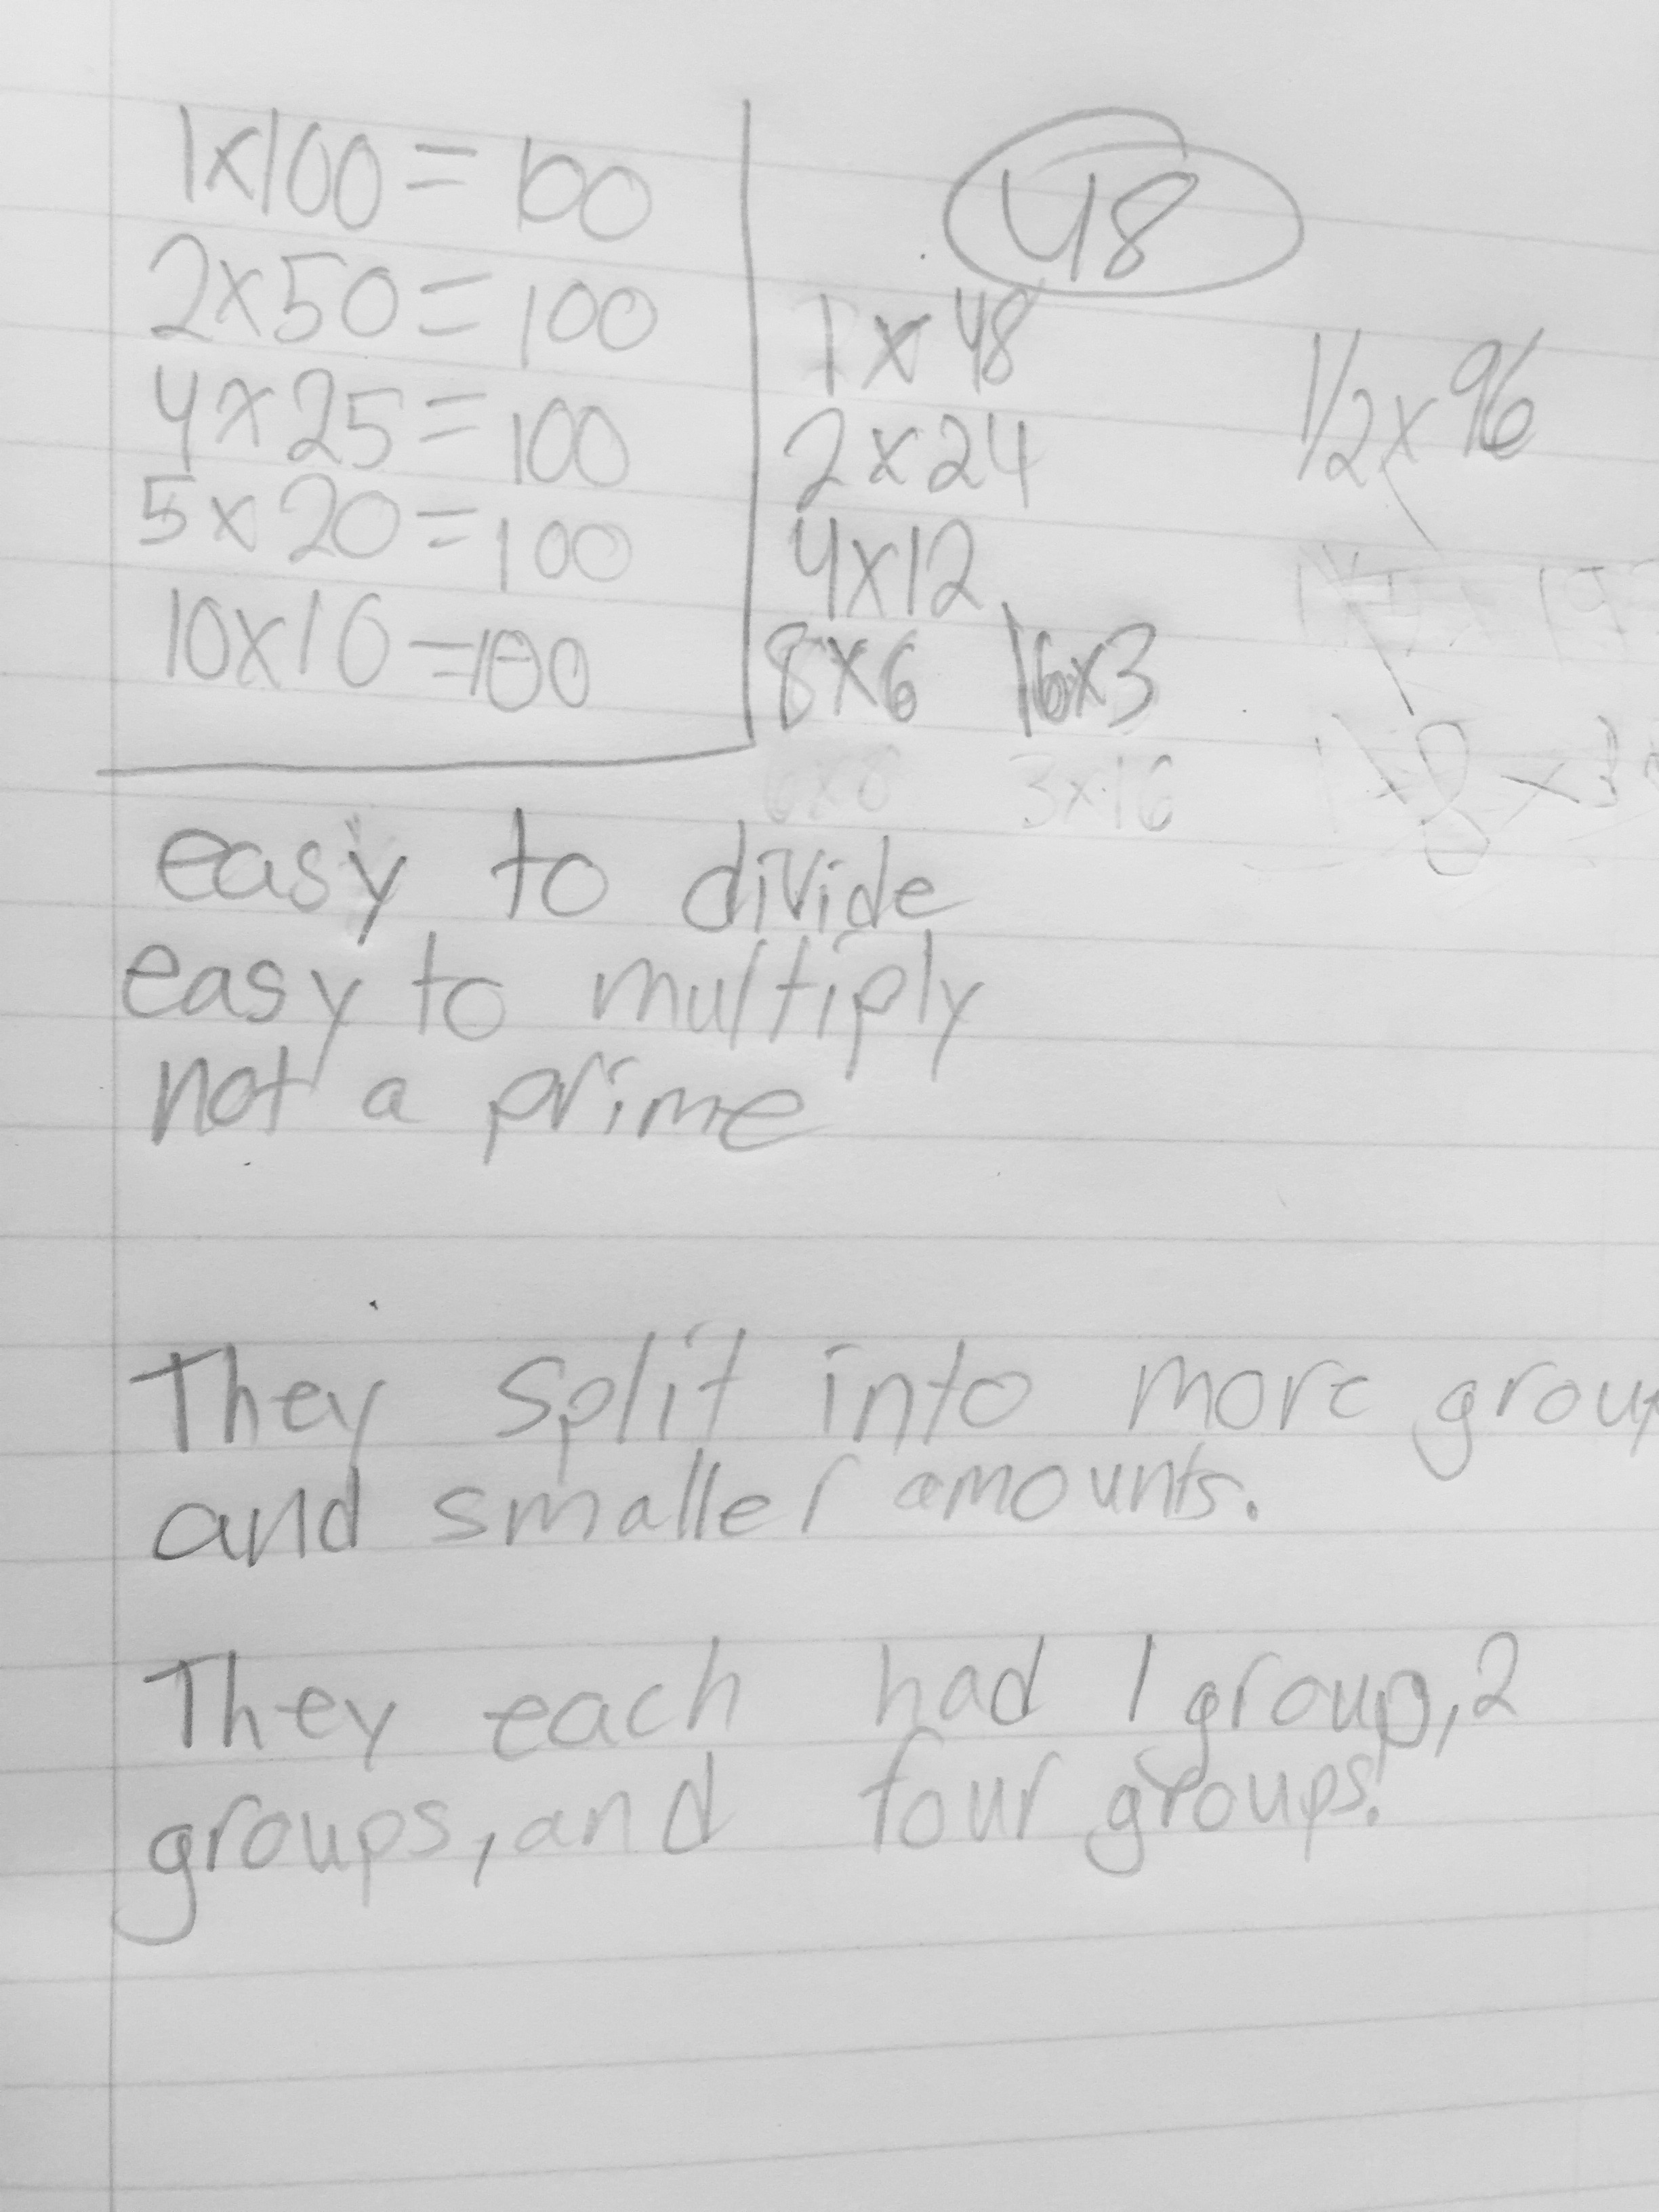 1x100 = 100
2x50 = 100
4x25 = 100
5x20 = 100
10x10 = 100
48
1 x 48
2 x 24
4x12
8x6 16x3
6x8 3x16
1/2 x 96
easy to divide
easy to multiply
not a prime
They split into more group
and smaller amounts.
They each had 1 group, 2
groups, and four groups.